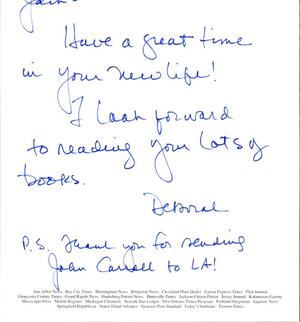 Jack -
Have a great time
in your new life!
I look forward
to reading your lots of
books.
Deborah
P.S. Thank you for sending
John Carroll to LA!
Ann Arbor News Bay City Times Birmingham News Bridgeton News Cleveland Plain Dealer Eastern Express-Times Flint Journal
Gloucester County Times Grand Rapids Press Harrisburg Patriot-News Huntsville Times Jackson Citizen Patriot Jersey Journal Kalamazoo Gazette
Mississippi Press Mobile Register Muskegon Chronicle Newark Star-Ledger New Orleans Times-Picayune Portland Oregonian Saginaw News
Springfield Republican Staten Island Advance Syracuse Post-Standard Today's Sunbeam Trenton Times